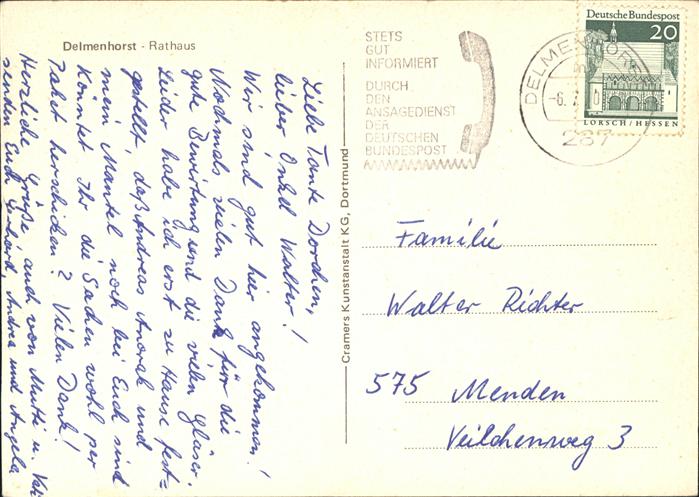 Delmenhorst - Rathaus
Liebe Tante Dorchen,
lieber Onkel Walter!
Wir sind gut hier angekommen!
Nochmals vielen Dank für die
gute Bewirtung und die vielen Gläser.
Leider habe ich erst zu Hause fest=
gestellt, daß Andreas Anorak und
mein Mantel noch bei Euch sind
Könntet Ihr die Sachen wohl per
Paket herschicken? Vielen Dank!
Herzliche Grüße auch von Mutti u. Vati
senden Euch Gerhard, Andrea und Angela
Cramers Kunstanstalt KG, Dortmund
STETS
GUT
INFORMIERT
DURCH
DEN
ANSAGEDIENST
DER
DEUTSCHEN
BUNDESPOST
DELMENHOR
-6.
287
Deutsche Bundespost
20
LORSCH/HESSEN
Familie
Walter Richter
575 Menden
Veilchenweg 3